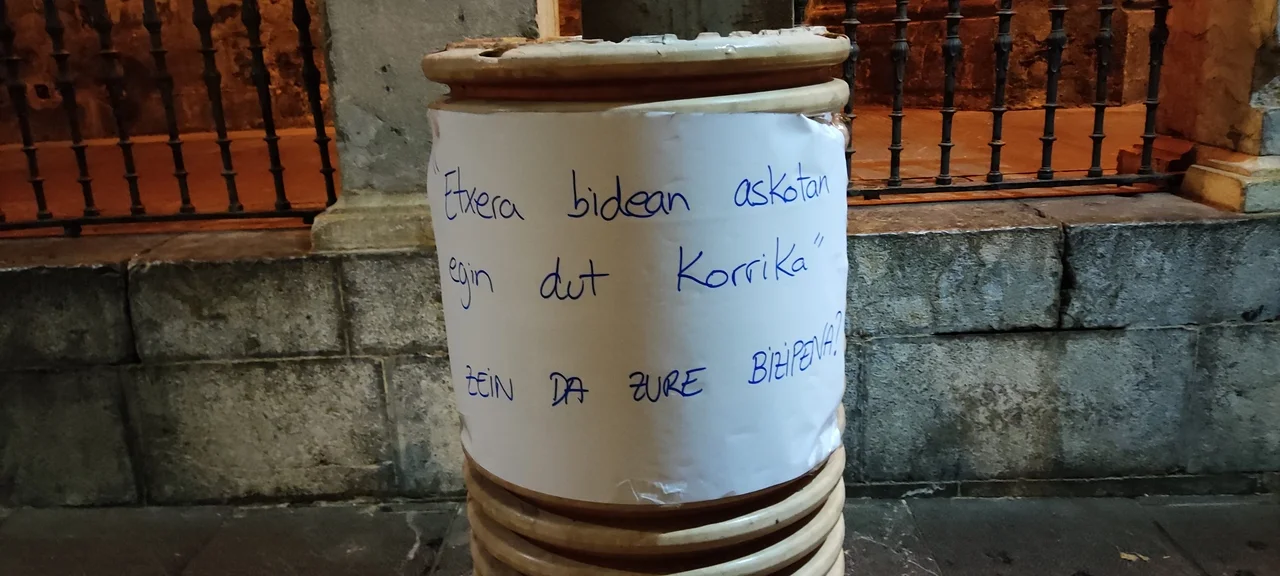 "Etxera bidean askotan
egin dut Korrika"
ZEIN DA ZURE BIZIPENA?